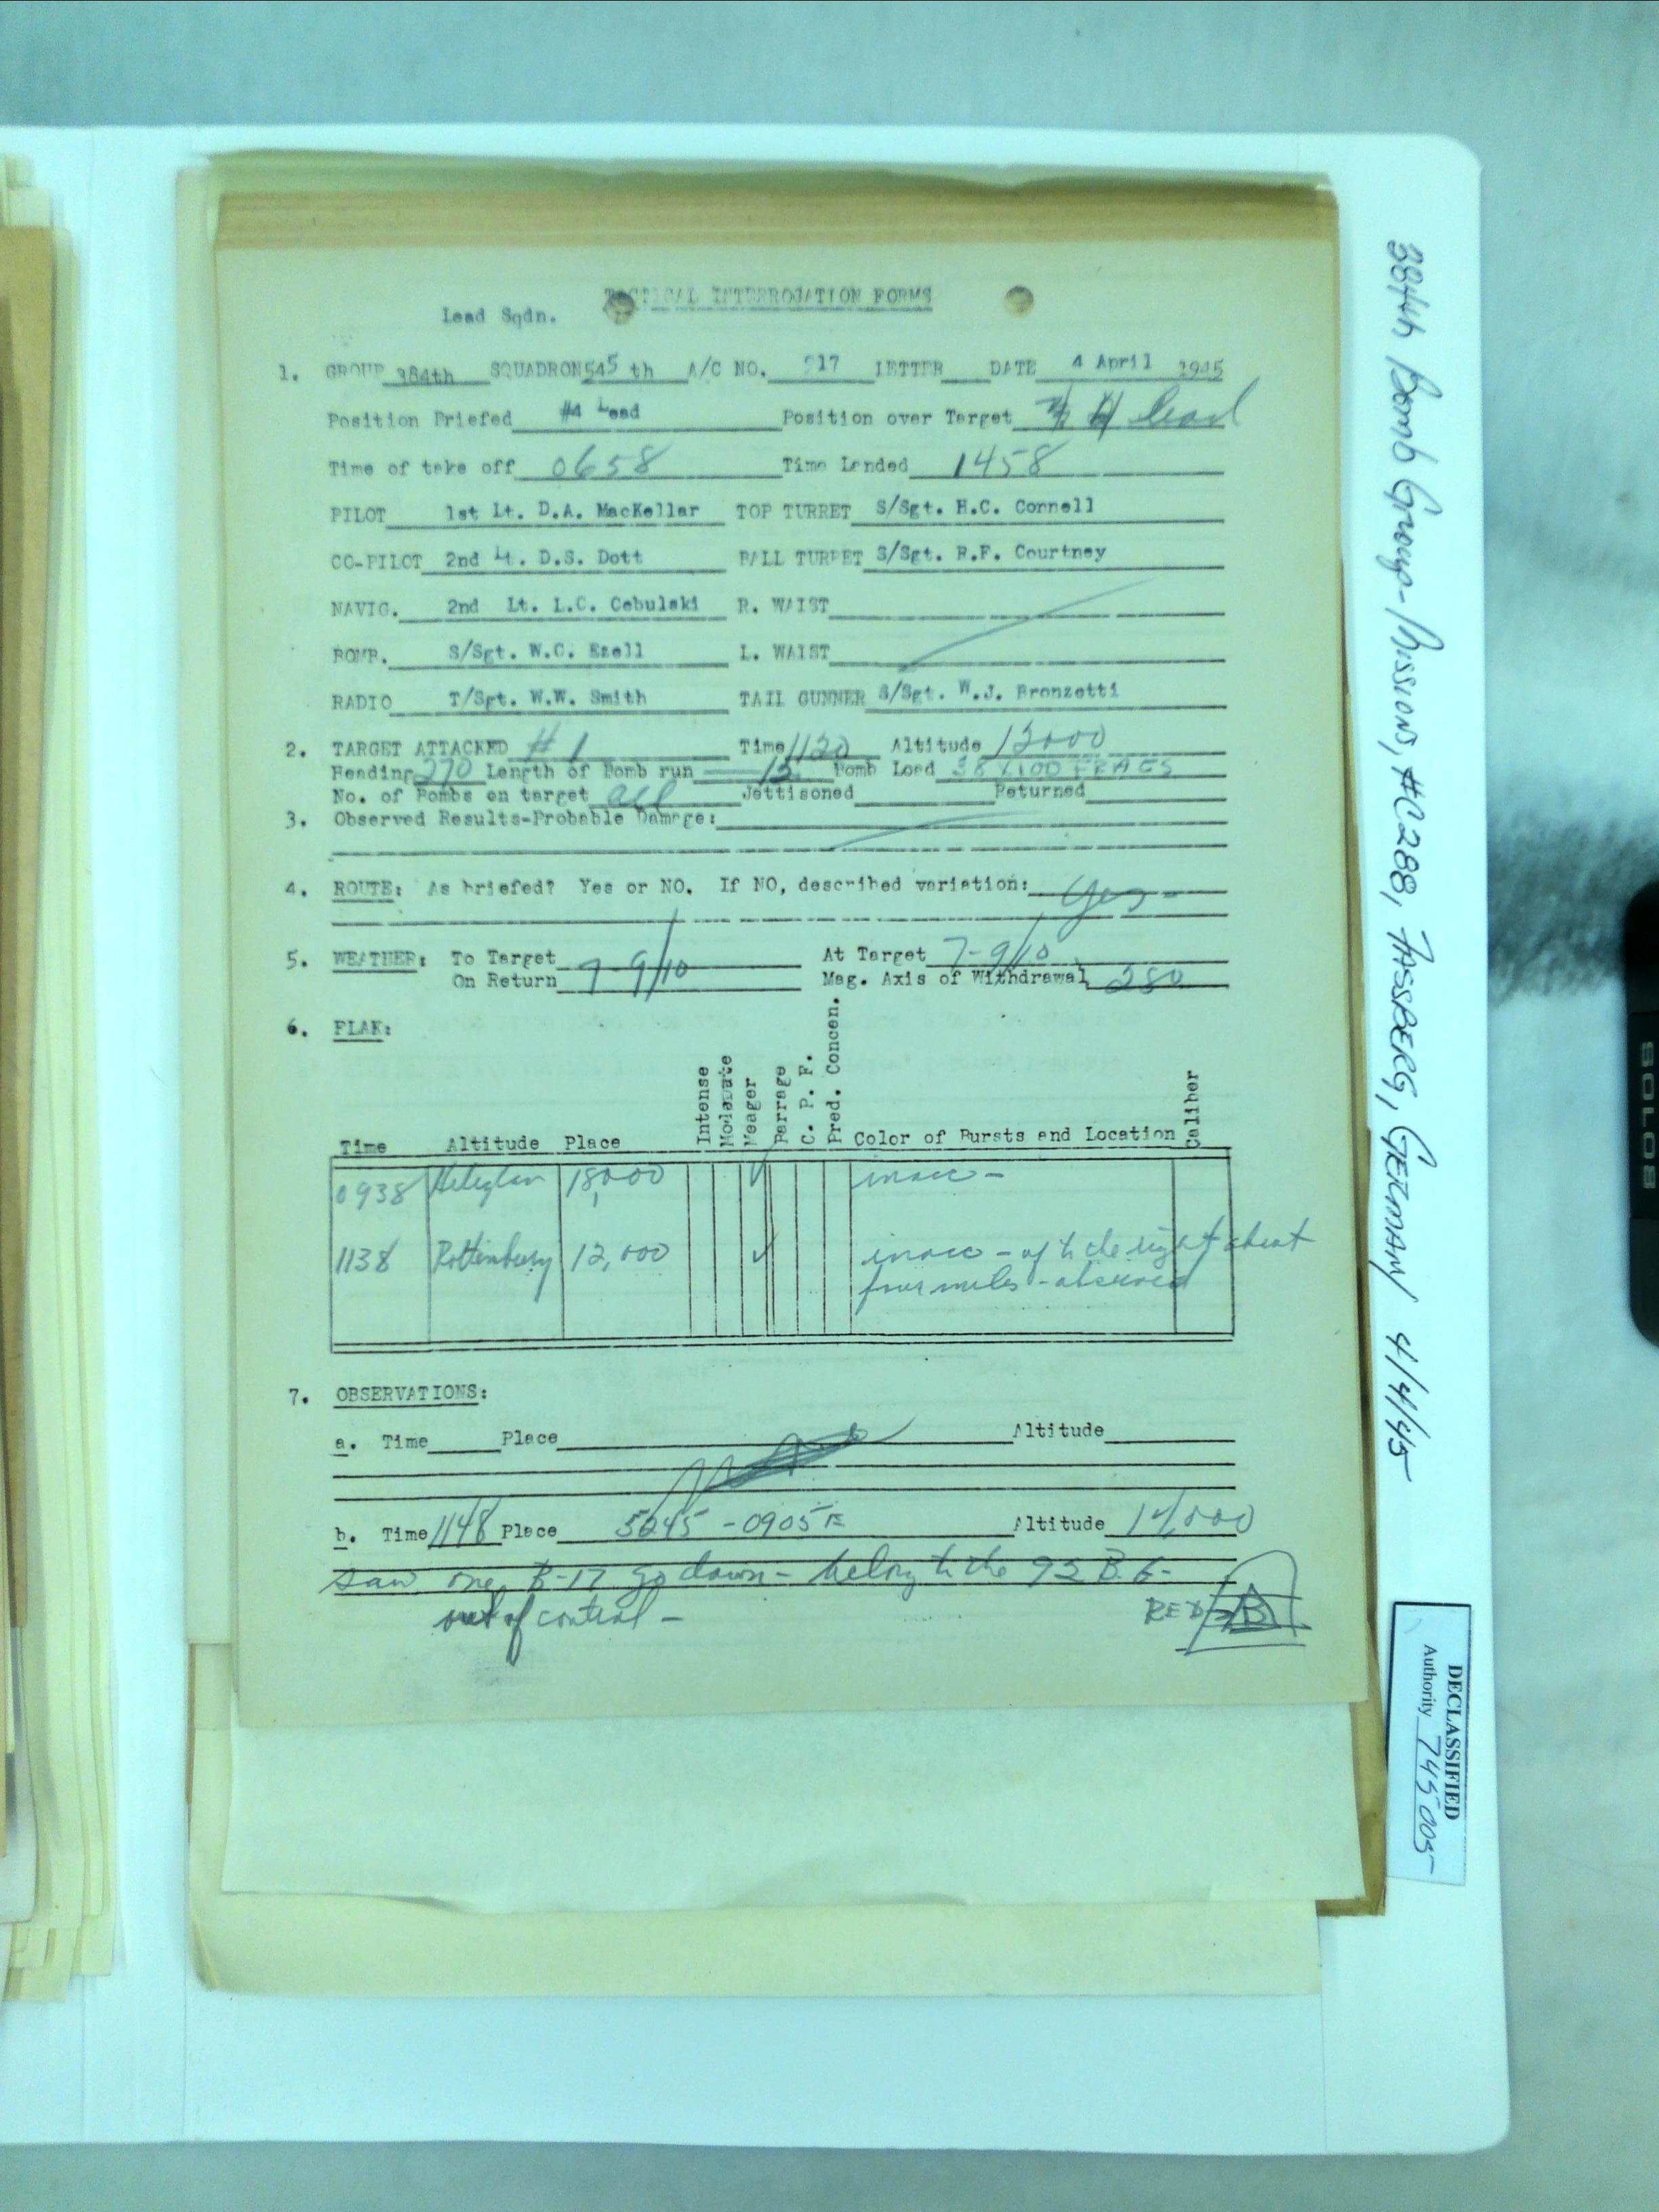 TACTICAL INTERROGATION FORMS
Lead Sqdn.
1. GROUP 384th SQUADRON 545 th A/C NO. 917 LETTER DATE 4 April 1945
Position Briefed #4 Lead Position over Target #4 lead
Time of take off 0658 Time Landed 1458
PILOT 1st Lt. D.A. MacKellar TOP TURRET S/Sgt. H.C. Cornell
CO-PILOT 2nd Lt. D.S. Dott BALL TURRET S/Sgt. R.F. Courtney
NAVIG. 2nd Lt. L.C. Cebulski R. WAIST
BOMB. S/Sgt. W.C. Ezell L. WAIST
RADIO T/Sgt. W.W. Smith TAIL GUNNER S/Sgt. W.J. Bronzetti
2. TARGET ATTACKED # 1 Time 1120 Altitude 13000
Heading 270 Length of Bomb run Bomb Load 38 X100 FRAGS
No. of Bombs on target all Jettisoned Returned
3. Observed Results-Probable Damage:
4. ROUTE: As briefed? Yes or NO. If NO, described variation: yes -
5. WEATHER: To Target At Target 7-9/10
On Return 7-9/10 Mag. Axis of Withdrawal 280
6. FLAK:
Time Altitude Place Intense Moderate Meager Barrage C. P. F. Pred. Concen. Color of Bursts and Location Caliber
0938 18,000 ✓ inacc -
1138 Rottenburg 12,000 ✓ inacc - off to the right about
four miles - observed
7. OBSERVATIONS:
a. Time Place Altitude
b. Time 1148 Place 5245 - 0905 E Altitude
saw one B-17 go down - belong to the 92 B.G.
out of control -
RED B
384th Bomb Group-Mission, #C288, FASSBERG, GERMANY 4/4/45
DECLASSIFIED
Authority 745005
SOLOS